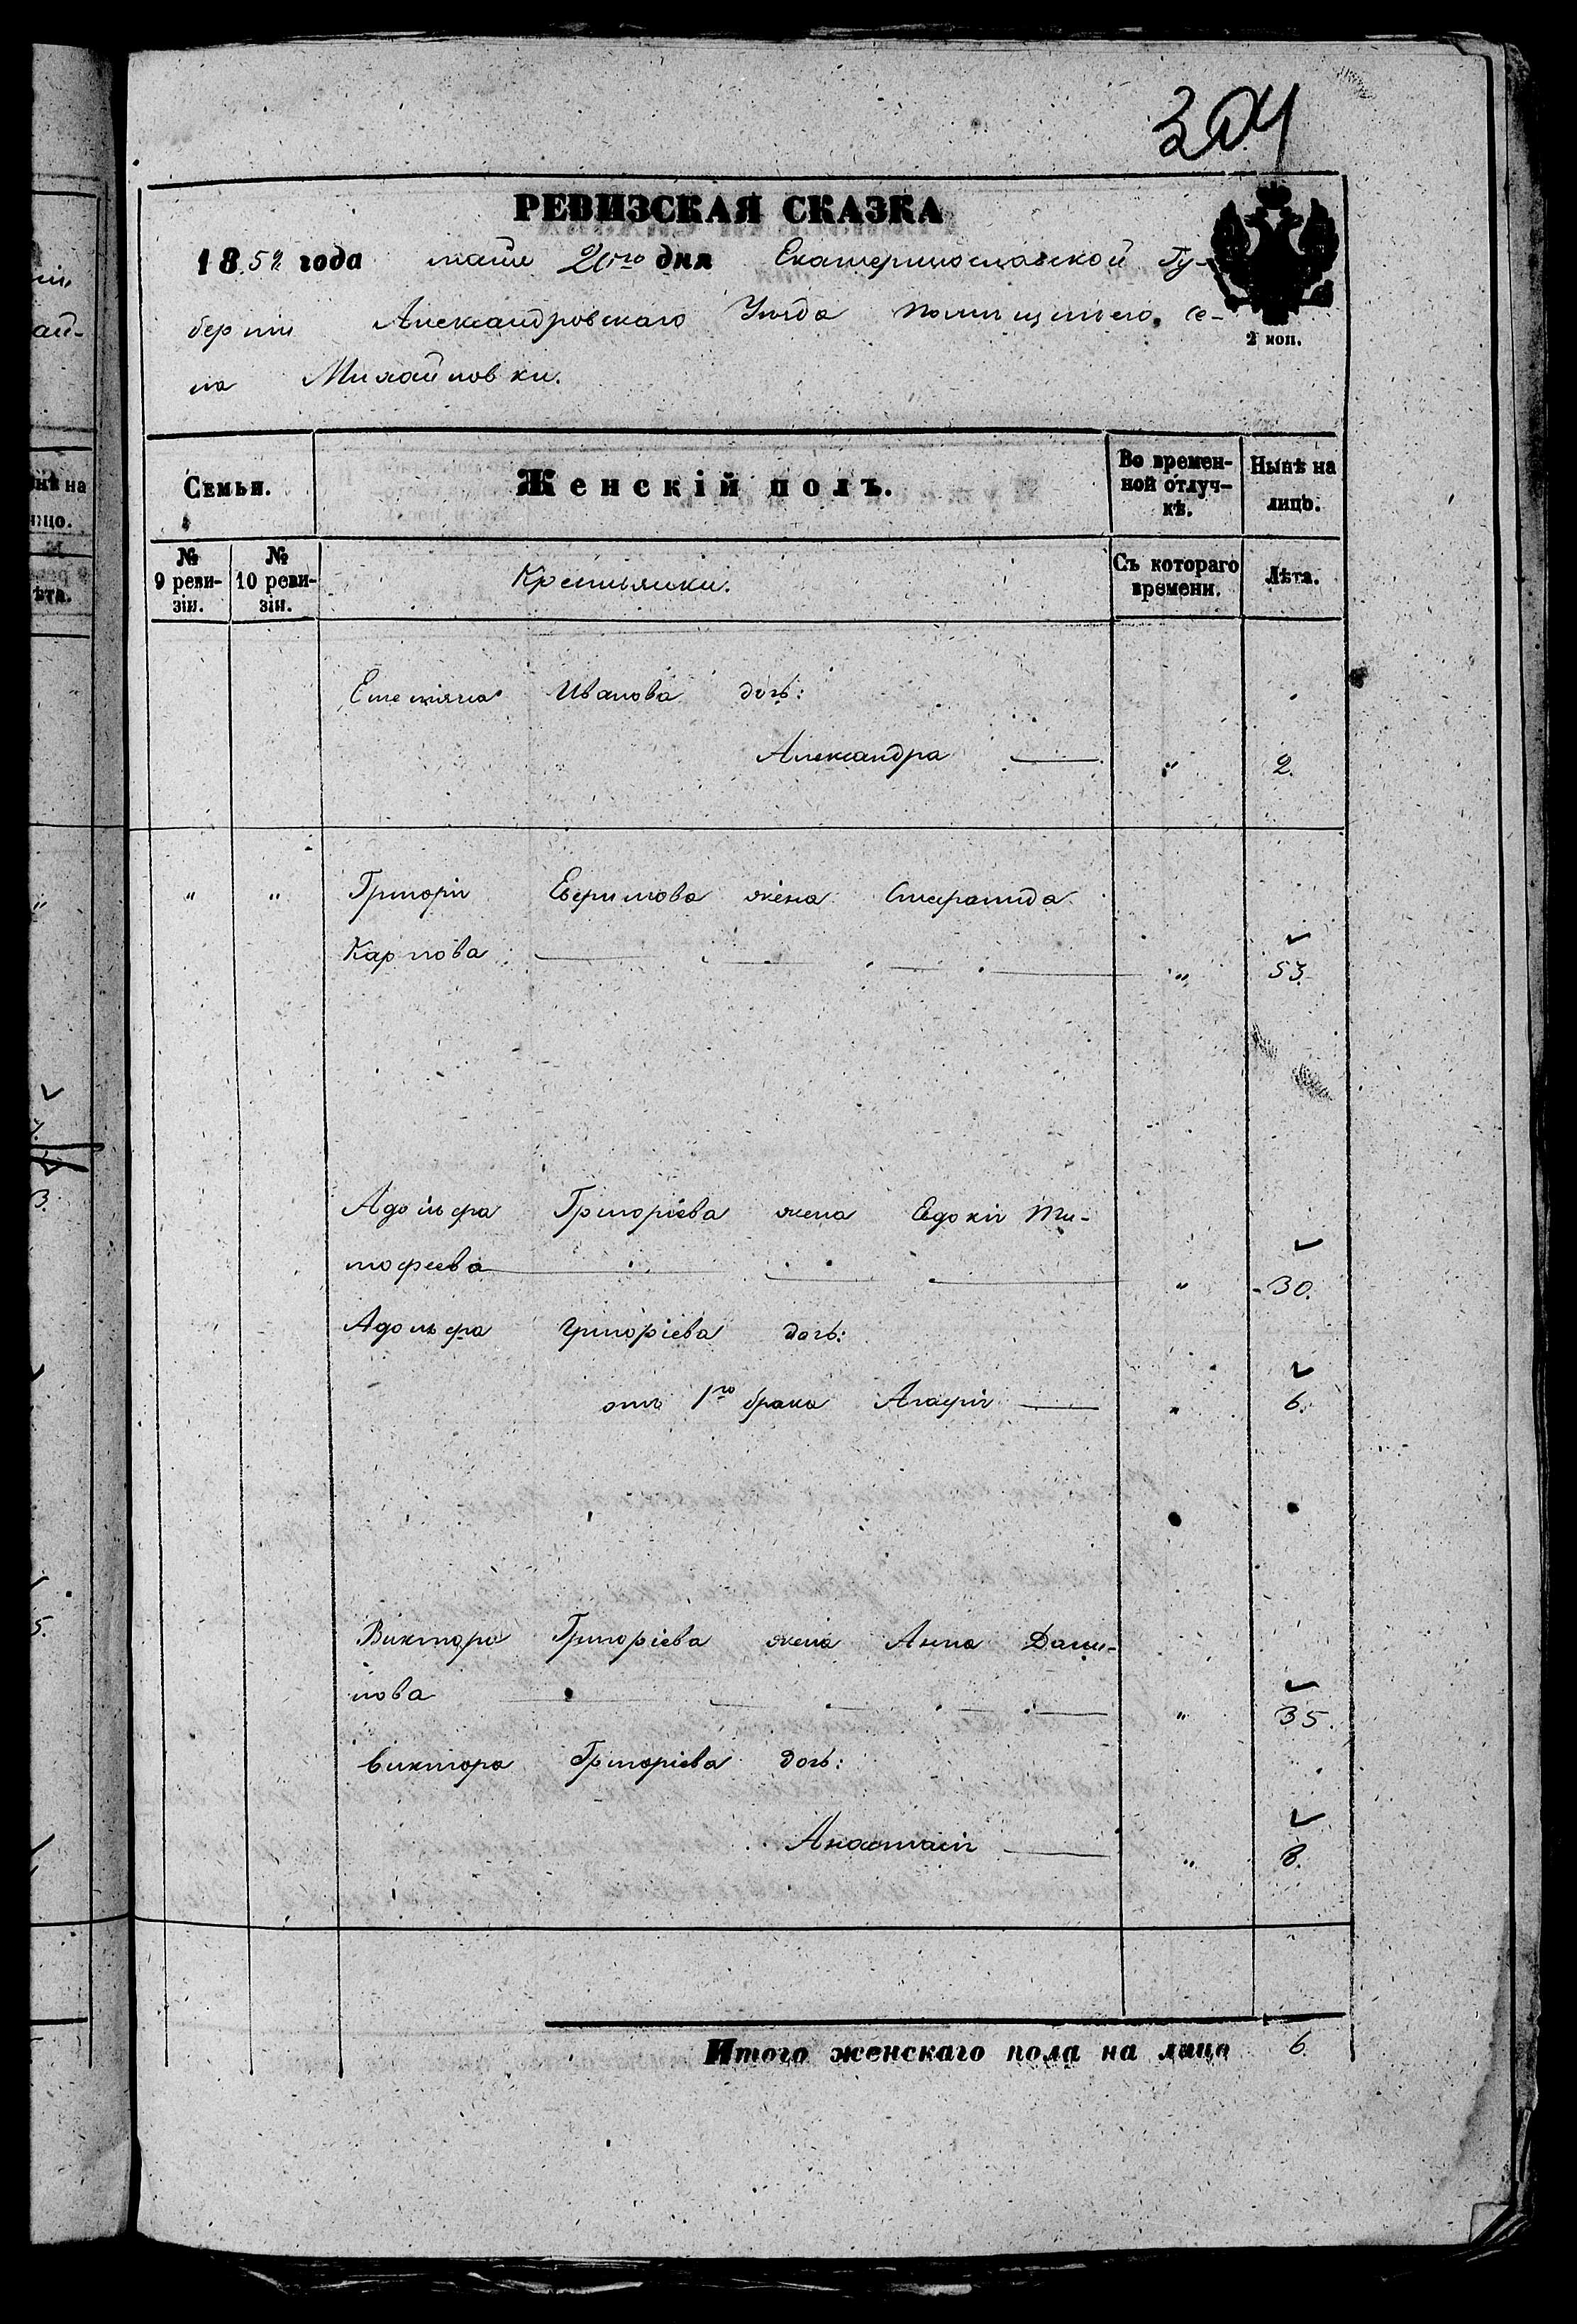 204
РЕВИЗСКАЯ СКАЗКА
1858 года маія 20го дня Екатеринославской Гу-
берніи Александровскаго Уѣзда помѣщичьего се-
ла Михайловки.
Семьи. Женскій полъ. Во времен-ной отлуч-кѣ. Нынѣ на лицо.
№ 9 реви-зіи. № 10 реви-зіи. Крестьянки. Съ котораго времени. Лѣта.
2 коп.
Иванова дочь:
Александра " 2.
" " Григорія жена
Карпова " 53.
Адольфа Григоріева жена Евдокія Ти-
мофеева " 30.
Адольфа Григоріева дочь:
отъ 1го брака Агафія " 6.
Виктора Григоріева жена Анна Дани-
лова " 35.
Виктора Григоріева дочь:
Анастасія " 8.
Итого женскаго пола на лицо 6.